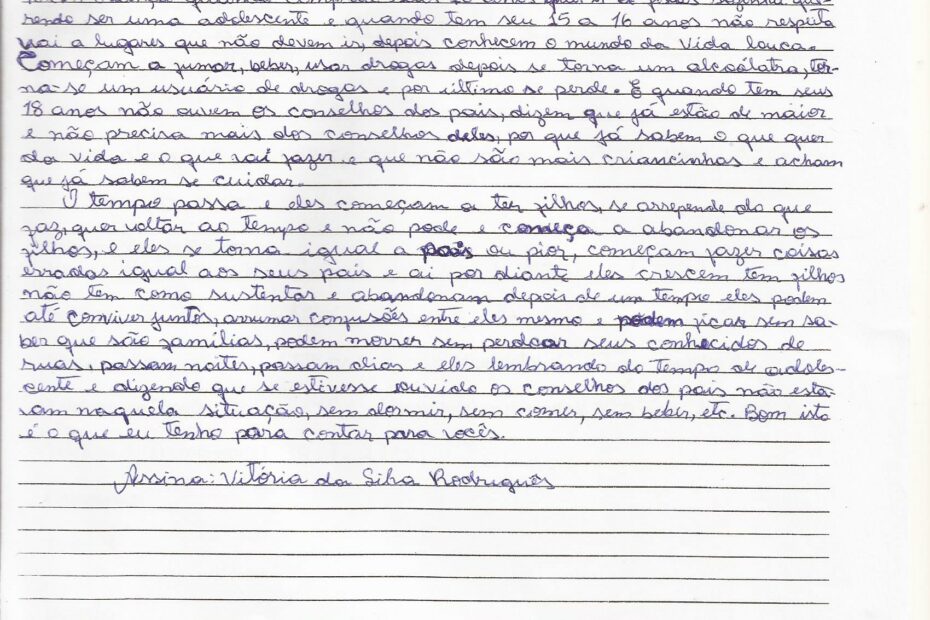 sendo ser uma adolescente e quando tem seu 15 a 16 anos não respeita
vai a lugares que não devem ir, depois conhecem o mundo da vida louca.
Começam a fumar, beber, usar drogas depois se torna um alcoólatra, tor-
na-se um usuário de drogas e por último se perde. E quando tem seus
18 anos não ouvem os conselhos dos pais, dizem que já estão de maior
e não precisa mais dos conselhos deles, por que já sabem o que quer
da vida e o que vai fazer e que não são mais criancinhas e acham
que já sabem se cuidar.
O tempo passa e eles começam a ter filhos, se arrepende do que
faz, quer voltar ao tempo e não pode e começa a abandonar os
filhos, e eles se torna igual a pais ou pior, começam fazer coisas
erradas igual aos seus pais e ai por diante eles crescem tem filhos
não tem como sustentar e abandonam depois de um tempo eles podem
até conviver juntos, arrumar confusões entre eles mesmo e podem ficar sem sa-
ber que são famílias, podem morrer sem perdoar seus conhecidos de
suas, passam noites, passam dias e eles lembrando do tempo de adoles-
cente e dizendo que se estivesse ouvido os conselhos dos pais não esta-
vam naquela situação, sem dormir, sem comer, sem beber, etc. Bom isto
é o que eu tenho para contar para vocês.
Assina: Vitória da Silva Rodrigues